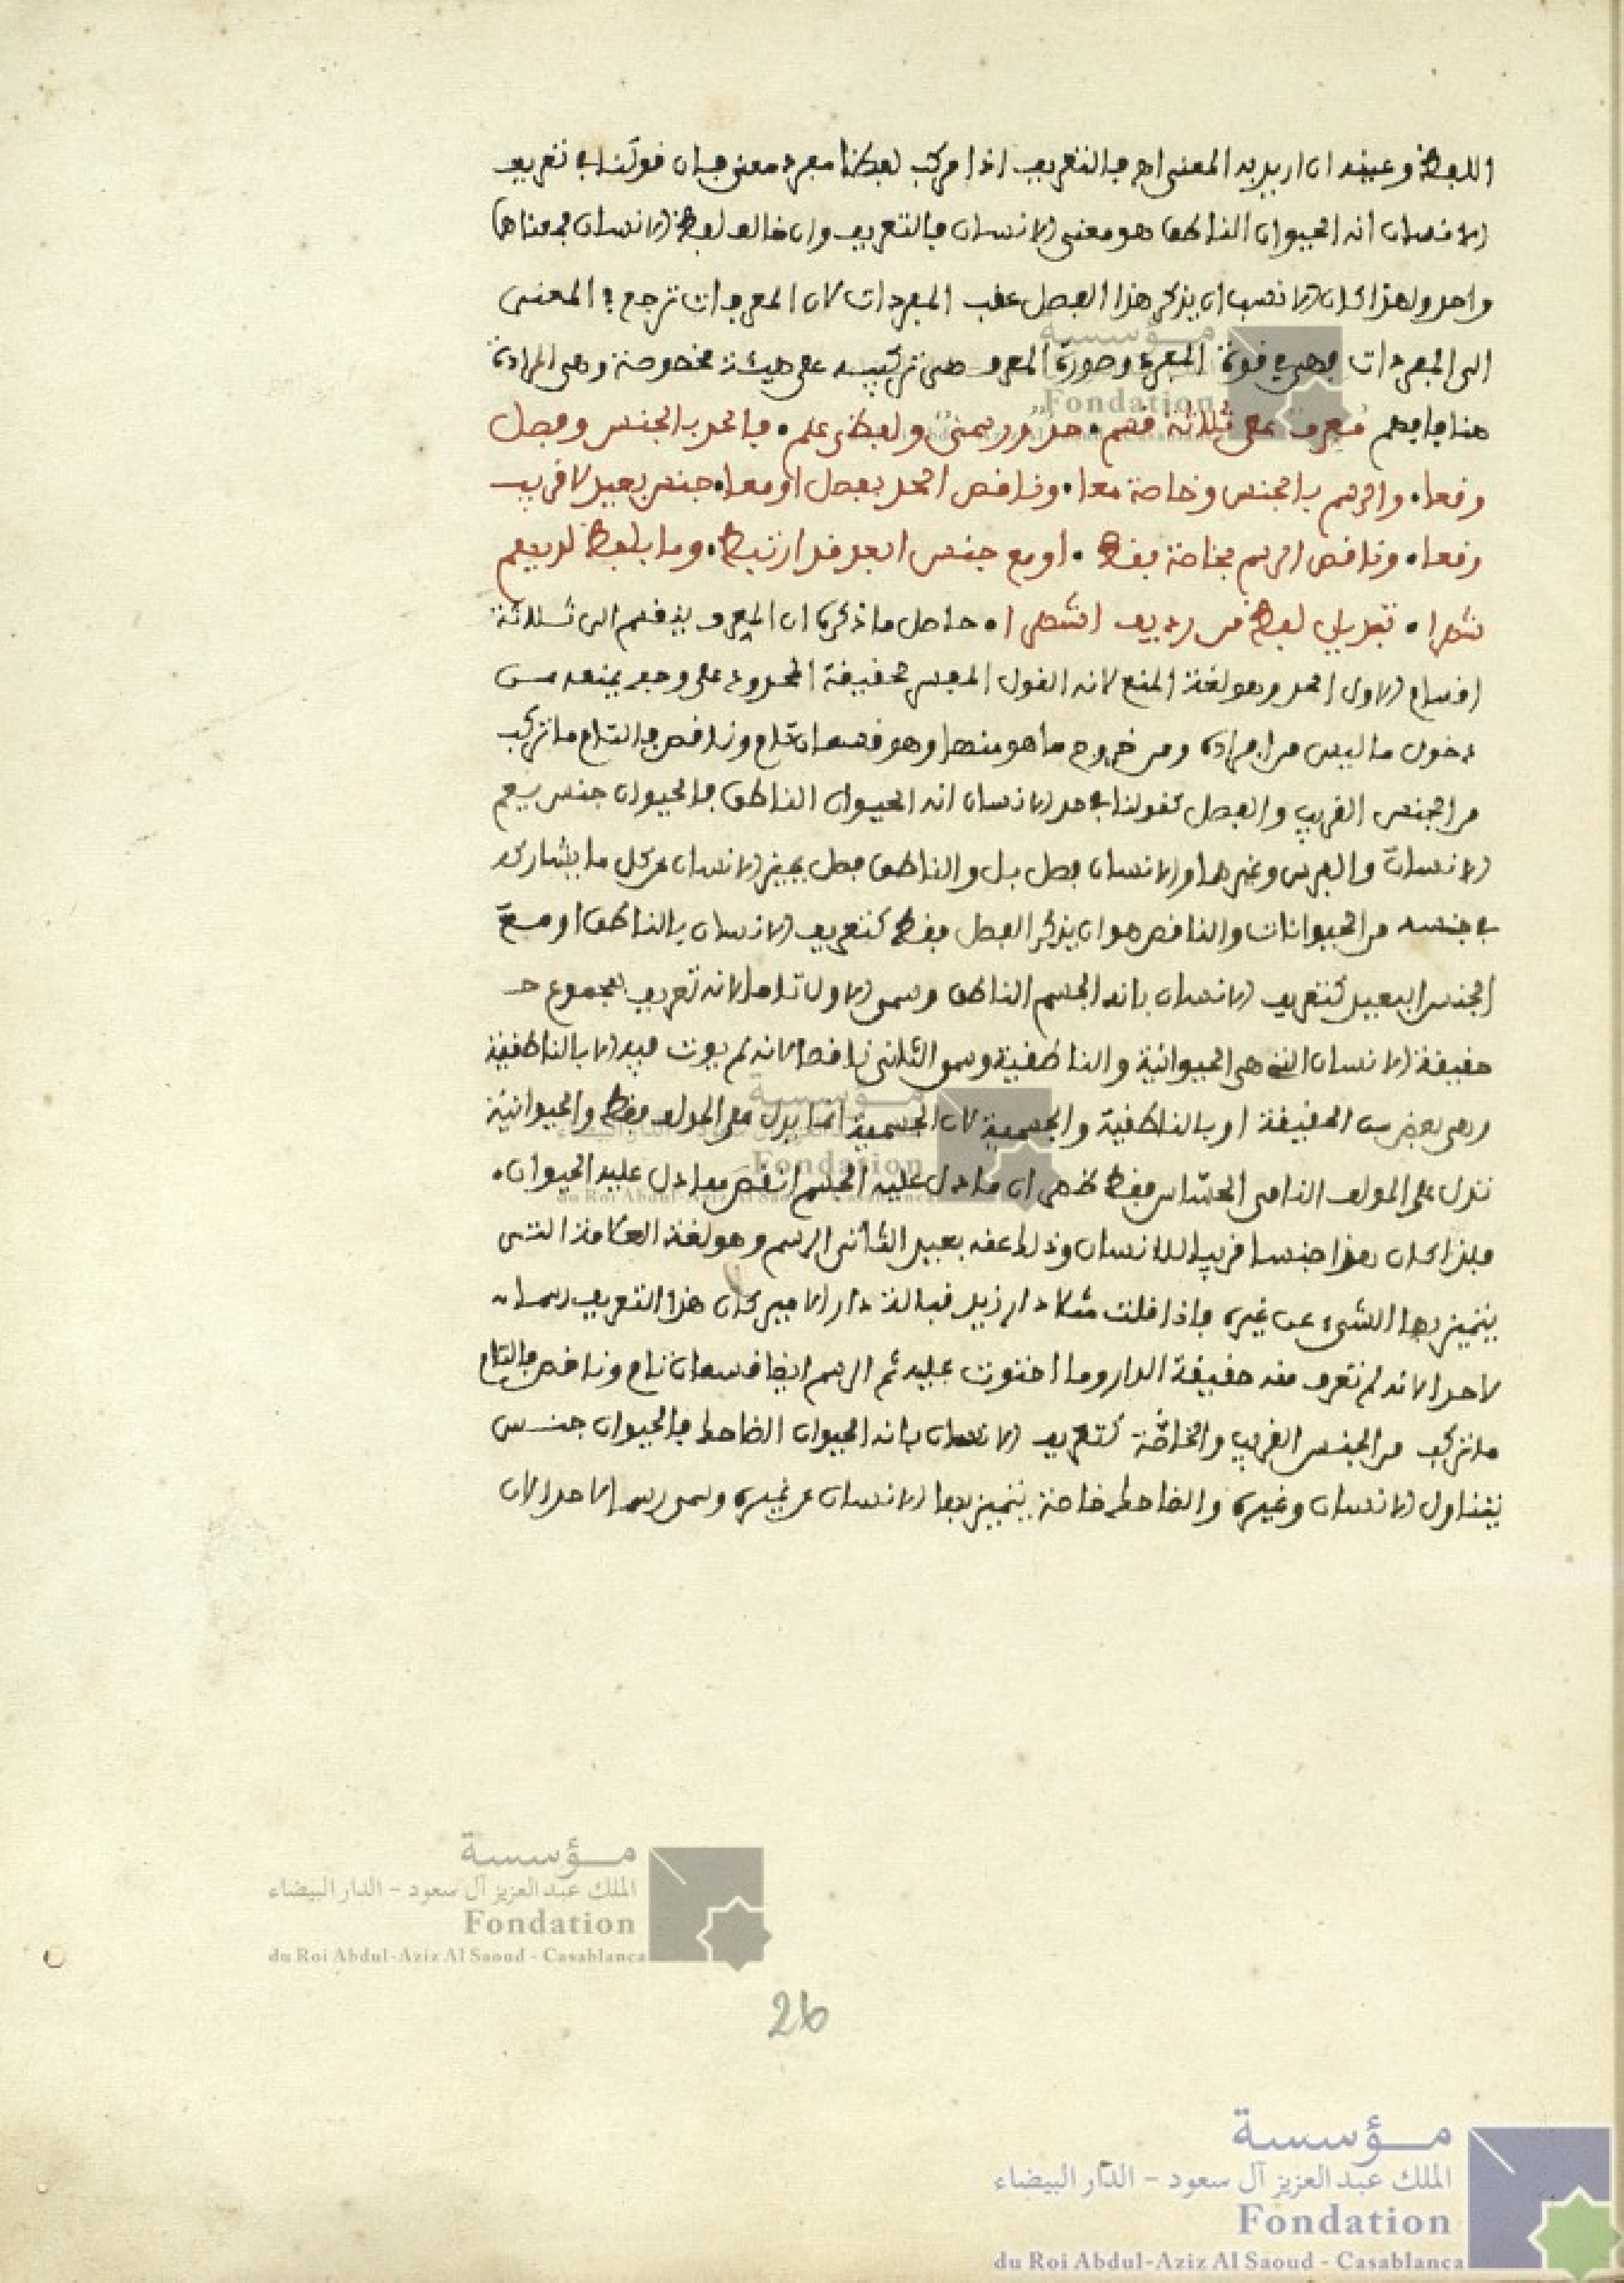 اللفظ وعينه ان اريد به المعنى اجر فالتعريف اذا مركب لفظا مفرد معنى فان قولنا في تعريف
الانسان انه الحيوان الناطق هو معنى الانسان فالتعريف وان خالف لفظ الانسان فمعناهما
واحد ولهذا كان الانسب ان يذكر هذا الفصل عقب المفردات لان المعرفات ترجع في المعنى
الى المفردات فهي في قوة المفرد وصورة المعرف هي تركيبه على هيئة مخصوصة وهي المرادة
هنا فافهم معرف على ثلاثة قسم • حد ورسمي ولفظي علم • فالحد بالجنس وفصل
وقعا • والرسم بالجنس وخاصة معا • وناقص الحد بفصل او معا • جنس بعيد لا قريب
وقعا • وناقص الرسم بخاصة فقط • او مع جنس ابعد قد ارتبط • وما بلفظ لديهم
شهرا • تبديل لفظ من رديف اشهرا • حاصل ما ذكره ان المعرف ينقسم الى ثلاثة
اقسام الاول الحد وهو لغة المنع لانه القول المفسر لحقيقة المحدود على وجه يمنعه من
دخول ما ليس من افراده ومن خروج ما هو منها وهو قسمان تام وناقص فالتام ما تركب
من الجنس القريب والفصل كقولنا في حد الانسان انه الحيوان الناطق فالحيوان جنس يعم
الانسان والفرس وغيرهما والانسان فصل بل والناطق فصل يميز الانسان عن كل ما يشاركه
في جنسه من الحيوانات والناقص هو ان يذكر الفصل فقط كتعريف الانسان بالناطق او مع
الجنس البعيد كتعريف الانسان بانه الجسم الناطق وسمي الاول تاما لانه تعريف بمجموع
حقيقة الانسان التي هي الحيوانية والناطقية وسمي الثاني ناقصا لانه لم يوت فيه الا بالناطقية
وهي بعض من الحقيقة او بالناطقية والجسمية لان الجسمية انما يدل على المولف فقط والحيوانية
تدل على المولف النامي الحساس فقط ظهر ان ما دل عليه الجسم انقص مما دل عليه الحيوان •
فلذا كان هذا جنسا قريبا للانسان وذلك عنه بعيد الثاني الرسم وهو لغة العلامة التي
يتميز بها الشيء عن غيره فاذا قلت مثلا دار زيد قبالة دار الامير كان هذا التعريف رسما له
لا حدا لانه لم تعرف منه حقيقة الدار وما احتوت عليه ثم الرسم ايضا قسمان تام وناقص فالتام
ما تركب من الجنس القريب والخاصة كتعريف الانسان بانه الحيوان الضاحك فالحيوان جنس
يتناول الانسان وغيره والضاحك خاصة يتميز بها الانسان عن غيره وسمي رسما لا حدا لان
مؤسسة
الملك عبد العزيز آل سعود - الدار البيضاء
Fondation
du Roi Abdul-Aziz Al Saoud - Casablanca
26
مؤسسة
الملك عبد العزيز آل سعود - الدار البيضاء
Fondation
du Roi Abdul-Aziz Al Saoud - Casablanca